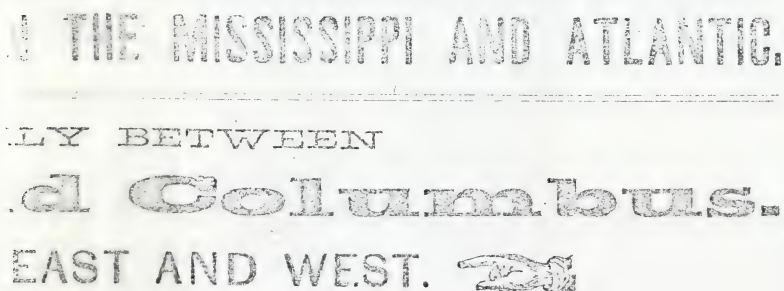 THE MISSISSIPPI AND ATLANTIC.
LY BETWEEN
d Columbus.
EAST AND WEST.